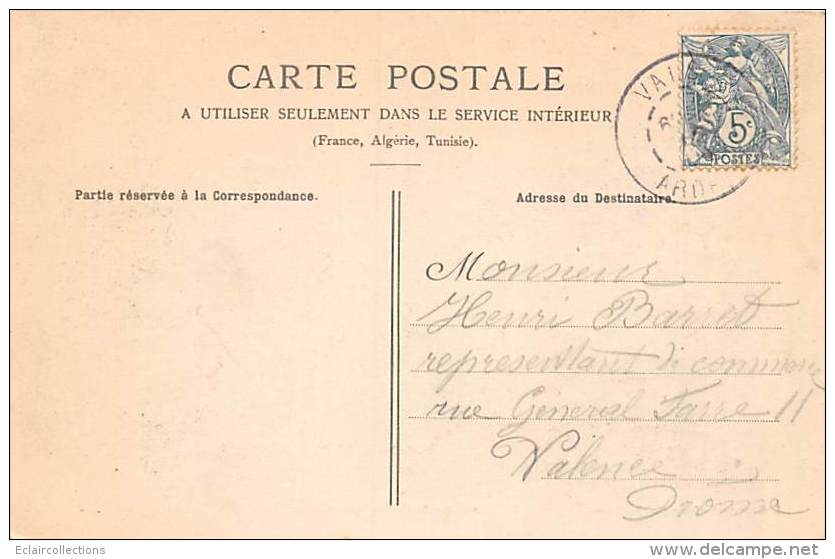 CARTE POSTALE
A UTILISER SEULEMENT DANS LE SERVICE INTÉRIEUR
(France, Algérie, Tunisie).
5c
POSTES
VAL
ARD
Partie réservée à la Correspondance.
Adresse du Destinataire.
Monsieur
Henri Barret
représentant de commerce
rue Général Farre 11
Valence
Drôme
Eclaircollections
www.delcampe.net